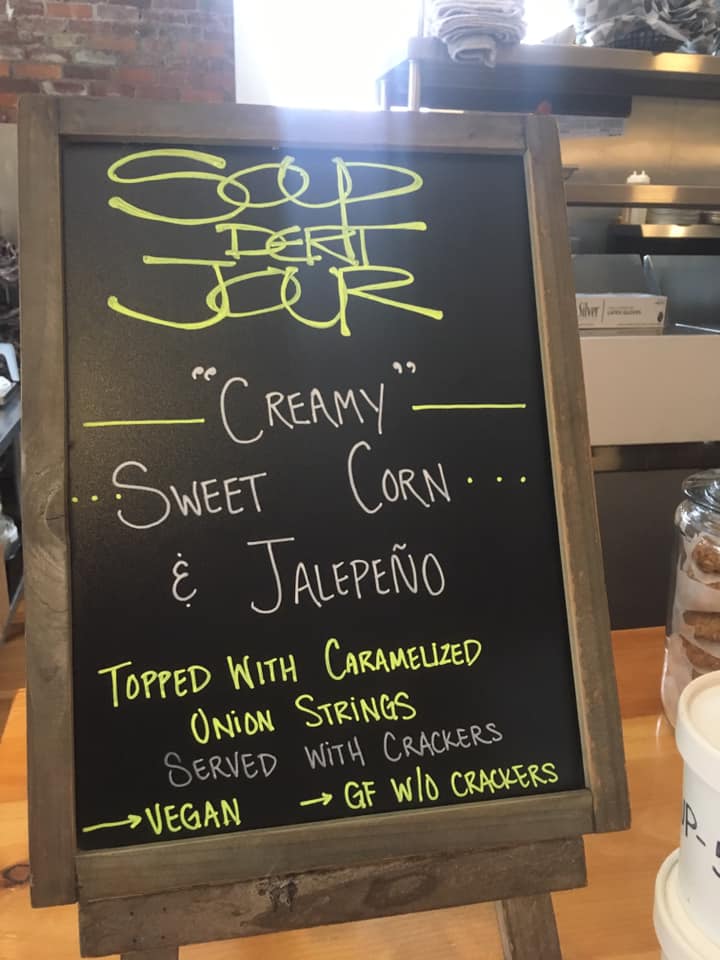 SOUP
DERT
JOUR
"CREAMY"
SWEET CORN
& JALEPEÑO
TOPPED WITH CARAMELIZED
ONION STRINGS
SERVED WITH CRACKERS
→ VEGAN → GF W/O CRACKERS
Silver